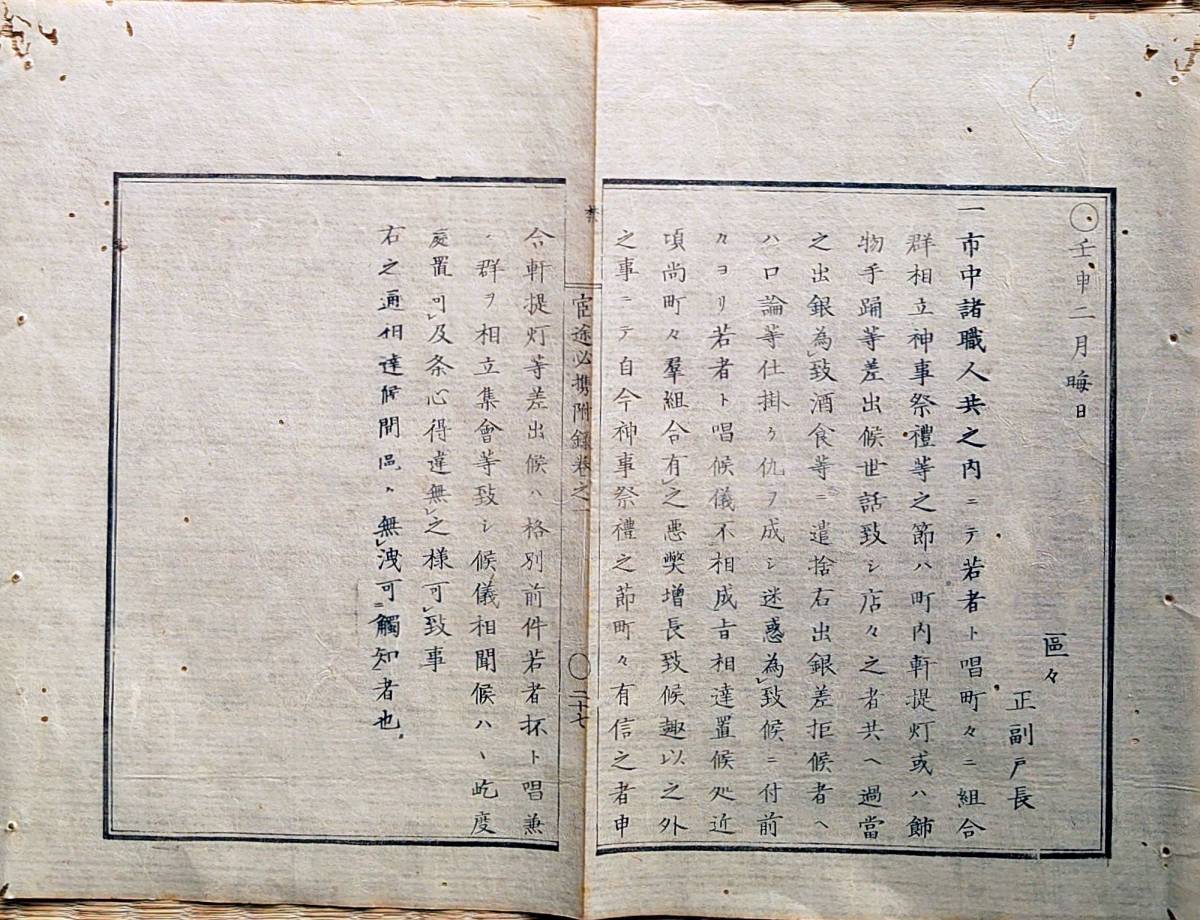 ○壬申二月晦日
區々
正副戸長
一市中諸職人共之内ニテ若者ト唱町々ニ組合
群相立神事祭禮等之節ハ町内軒提灯或ハ飾
物手踊等差出候世話致シ店々之者共ヘ過當
之出銀為致酒食等ニ遣捨右出銀差拒候者ヘ
ハ口論等仕掛ケ仇ヲ成シ迷惑為致候ニ付前
々ヨリ若者ト唱候儀不相成旨相達置候処近
項尚町々羣組合有之悪獘増長致候趣以之外
之事ニテ自今神事祭禮之節町々有信之者申
宦途必携附録巻之一
○二十七
合軒提灯等差出候ハ格別前件若者抔ト唱兼
々群ヲ相立集會等致シ候儀相聞候ハヽ屹度
處置可及条心得違無之様可致事
右之通相達候間區々無洩可觸知者也